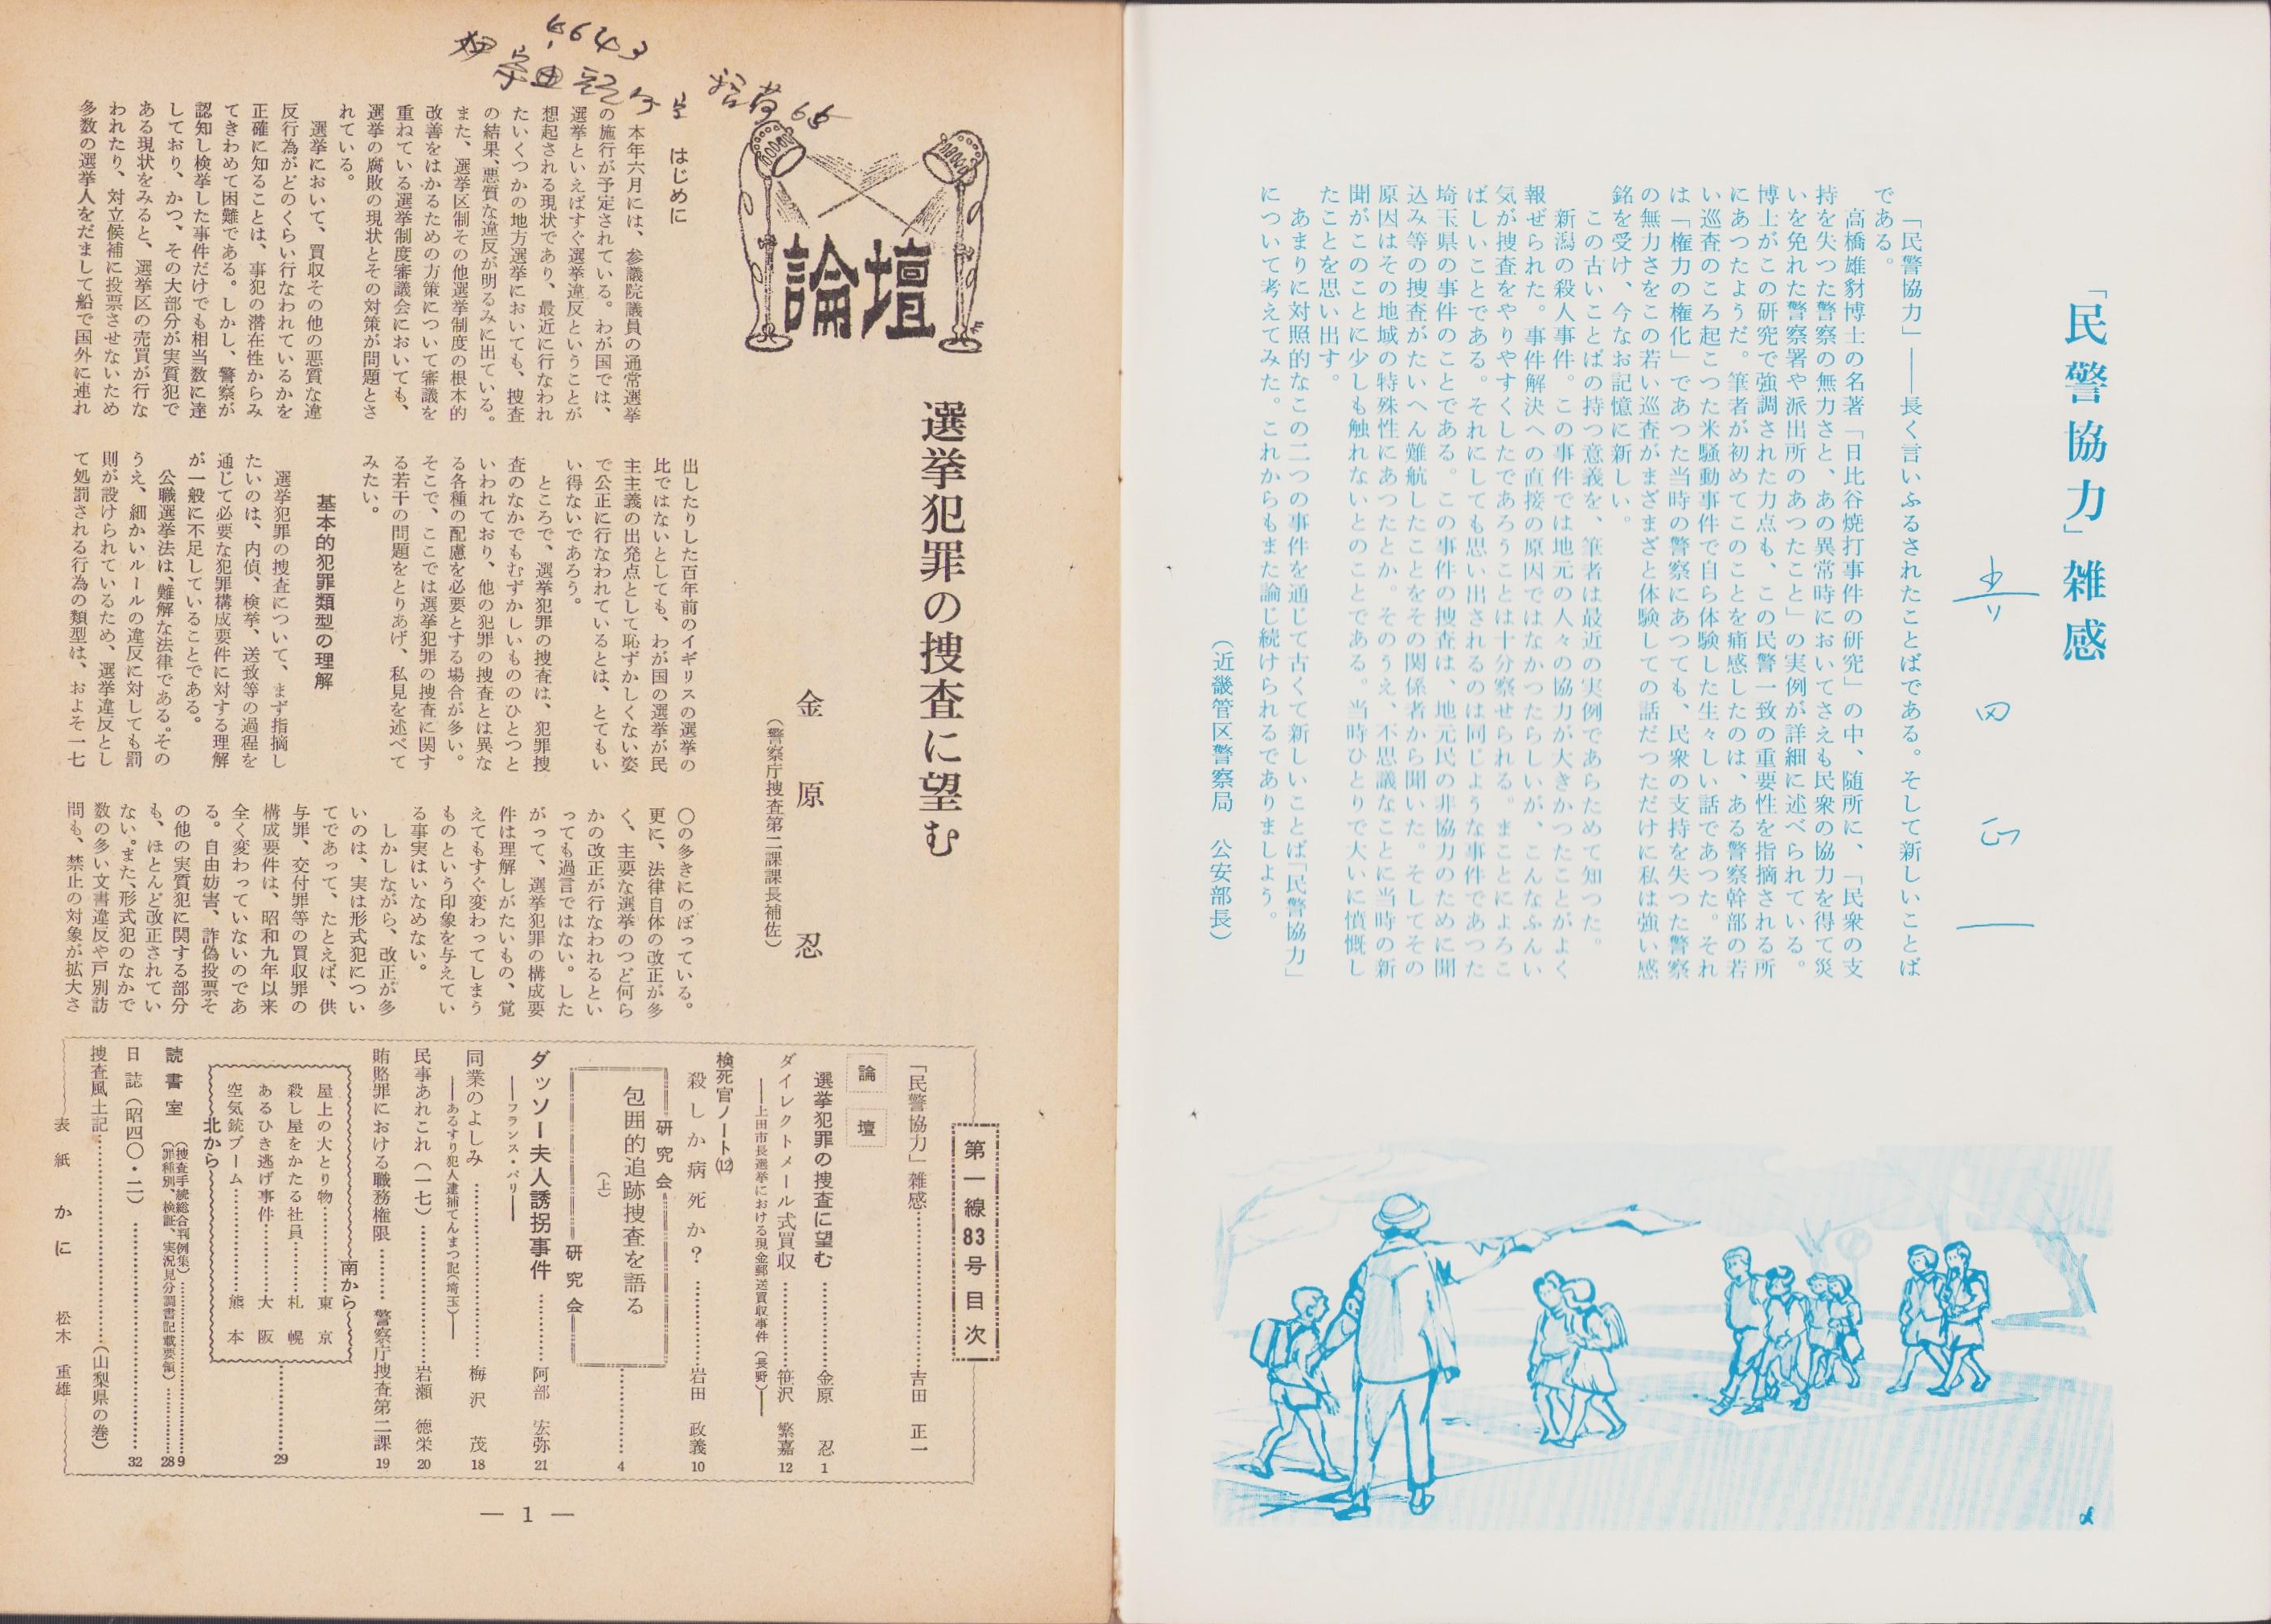 「民警協力」雑感
吉田正一
「民警協力」――長く言いふるされたことばである。そして新しいことば
である。
高橋雄豺博士の名著「日比谷焼打事件の研究」の中、随所に、「民衆の支
持を失つた警察の無力さと、あの異常時においてさえも民衆の協力を得て災
いを免れた警察署や派出所のあつたこと」の実例が詳細に述べられている。
博士がこの研究で強調された力点も、この民警一致の重要性を指摘される所
にあつたようだ。筆者が初めてこのことを痛感したのは、ある警察幹部の若
い巡査のころ起こつた米騒動事件で自ら体験した生々しい話であつた。それ
は「権力の権化」であつた当時の警察にあつても、民衆の支持を失つた警察
の無力さをこの若い巡査がまざまざと体験しての話だつただけに私は強い感
銘を受け、今なお記憶に新しい。
この古いことばの持つ意義を、筆者は最近の実例であらためて知つた。
新潟の殺人事件。この事件では地元の人々の協力が大きかつたことがよく
報ぜられた。事件解決への直接の原因ではなかつたらしいが、こんなふんい
気が捜査をやりやすくしたであろうことは十分察せられる。まことによろこ
ばしいことである。それにしても思い出されるのは同じような事件であつた
埼玉県の事件のことである。この事件の捜査は、地元民の非協力のために聞
込み等の捜査がたいへん難航したことをその関係者から聞いた。そしてその
原因はその地域の特殊性にあつたとか。そのうえ、不思議なことに当時の新
聞がこのことに少しも触れないとのことである。当時ひとりで大いに憤慨し
たことを思い出す。
あまりに対照的なこの二つの事件を通じて古くて新しいことば「民警協力」
について考えてみた。これからもまた論じ続けられるでありましよう。
（近畿管区警察局　公安部長）
6643
論壇
選挙犯罪の捜査に望む
金原忍
（警察庁捜査第二課課長補佐）
はじめに
本年六月には、参議院議員の通常選挙
の施行が予定されている。わが国では、
選挙といえばすぐ選挙違反ということが
想起される現状であり、最近に行なわれ
たいくつかの地方選挙においても、捜査
の結果、悪質な違反が明るみに出ている。
また、選挙区制その他選挙制度の根本的
改善をはかるための方策について審議を
重ねている選挙制度審議会においても、
選挙の腐敗の現状とその対策が問題とさ
れている。
選挙において、買収その他の悪質な違
反行為がどのくらい行なわれているかを
正確に知ることは、事犯の潜在性からみ
てきわめて困難である。しかし、警察が
認知し検挙した事件だけでも相当数に達
しており、かつ、その大部分が実質犯で
ある現状をみると、選挙区の売買が行な
われたり、対立候補に投票させないため
多数の選挙人をだまして船で国外に連れ
出したりした百年前のイギリスの選挙の
比ではないとしても、わが国の選挙が民
主主義の出発点として恥ずかしくない姿
で公正に行なわれているとは、とてもい
い得ないであろう。
ところで、選挙犯罪の捜査は、犯罪捜
査のなかでもむずかしいもののひとつと
いわれており、他の犯罪の捜査とは異な
る各種の配慮を必要とする場合が多い。
そこで、ここでは選挙犯罪の捜査に関す
る若干の問題をとりあげ、私見を述べて
みたい。
基本的犯罪類型の理解
選挙犯罪の捜査について、まず指摘し
たいのは、内偵、検挙、送致等の過程を
通じて必要な犯罪構成要件に対する理解
が一般に不足していることである。
公職選挙法は、難解な法律である。その
うえ、細かいルールの違反に対しても罰
則が設けられているため、選挙違反とし
て処罰される行為の類型は、およそ一七
〇の多きにのぼっている。
更に、法律自体の改正が多
く、主要な選挙のつど何ら
かの改正が行なわれるとい
っても過言ではない。した
がって、選挙犯罪の構成要
件は理解しがたいもの、覚
えてもすぐ変わってしまう
ものという印象を与えてい
る事実はいなめない。
しかしながら、改正が多
いのは、実は形式犯につい
てであって、たとえば、供
与罪、交付罪等の買収罪の
構成要件は、昭和九年以来
全く変わっていないのであ
る。自由妨害、詐偽投票そ
の他の実質犯に関する部分
も、ほとんど改正されてい
ない。また、形式犯のなかで
数の多い文書違反や戸別訪
問も、禁止の対象が拡大さ
第一線83号目次
「民警協力」雑感……吉田　正一
論壇
選挙犯罪の捜査に望む……金原　忍　1
ダイレクトメール式買収……笹沢　繁嘉　12
――上田市長選挙における現金郵送買収事件（長野）――
検死官ノート⑿
殺しか病死か？……岩田　政義　10
研究会
包囲的追跡捜査を語る
（上）
研究会……4
ダッソー夫人誘拐事件……阿部　宏弥　21
――フランス・パリ――
同業のよしみ……梅沢　茂　18
――あるすり犯人逮捕てんまつ記（埼玉）――
民事あれこれ（一七）……岩瀬　徳栄　20
賄賂罪における職務権限……警察庁捜査第二課　19
南から
屋上の大とり物……東京
殺し屋をかたる社員……札幌
あるひき逃げ事件……大阪
空気銃ブーム……熊本
北から
……29
読書室
（捜査手続総合判例集）……9
（罪種別、検証、実況見分調書記載要領）……28
日誌（昭四〇・二）……32
捜査風土記……（山梨県の巻）
表紙　かに　松木　重雄
― 1 ―